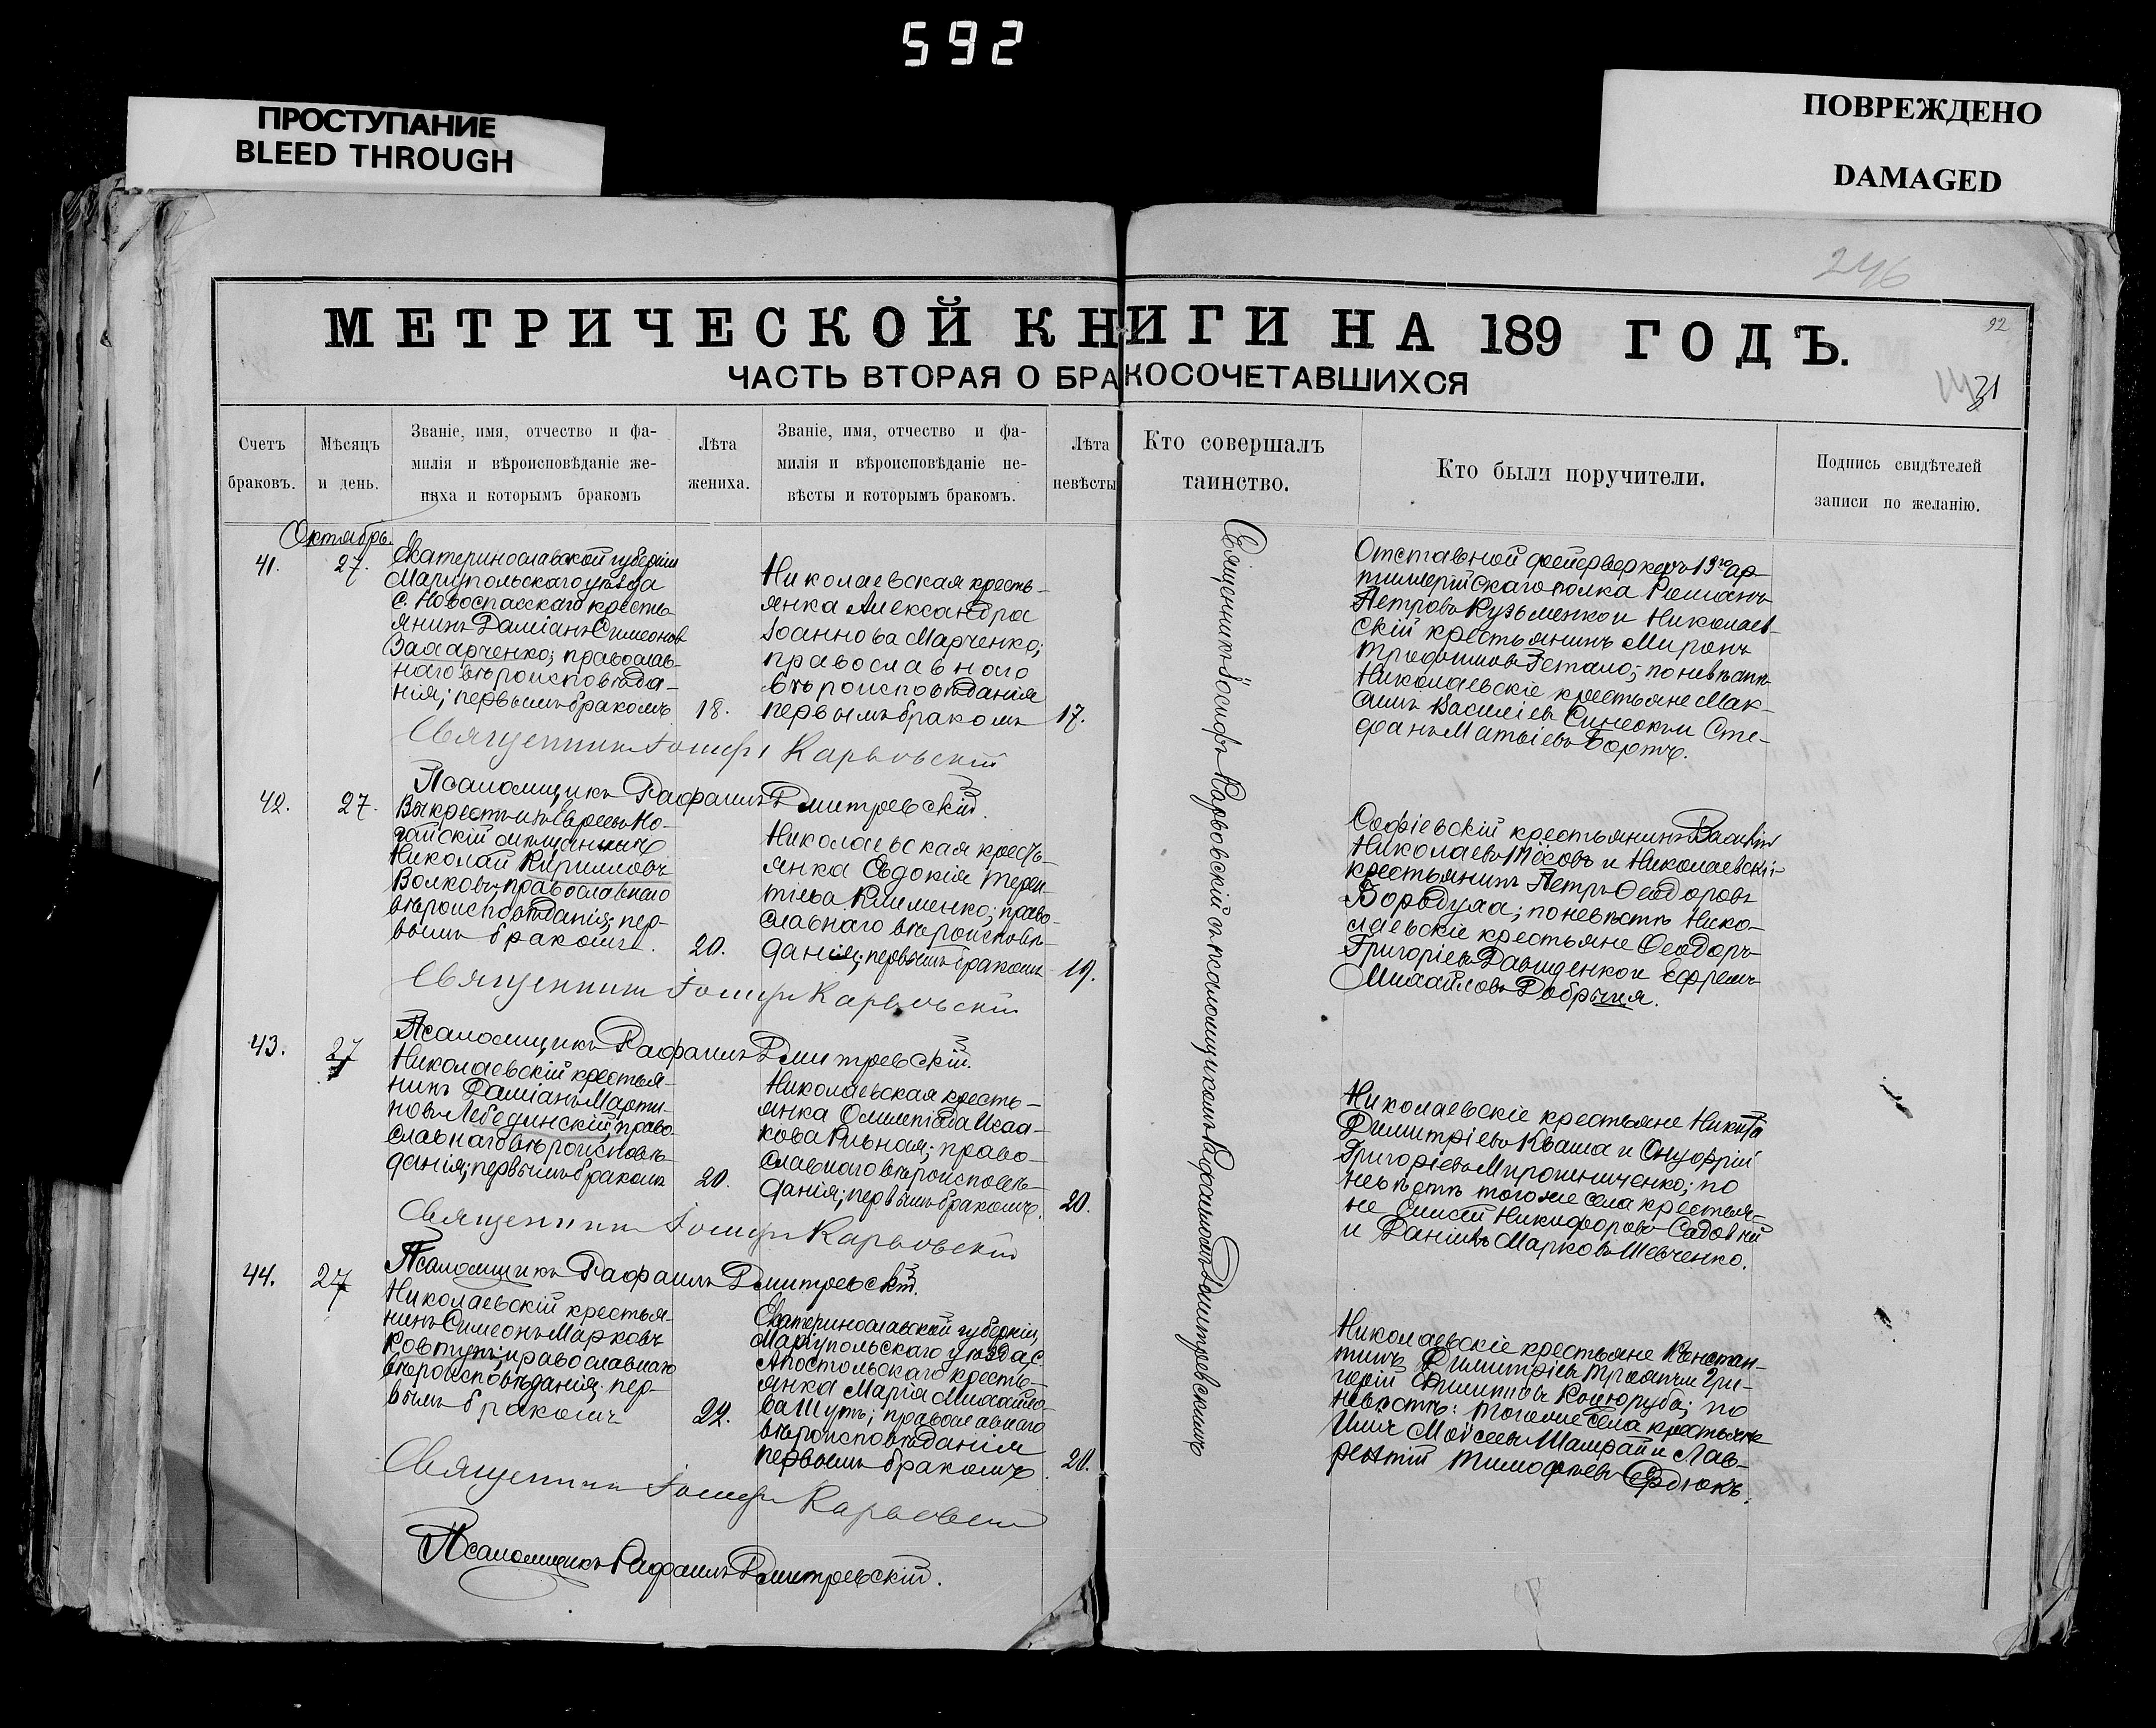 592
ПРОСТУПАНИЕ
BLEED THROUGH
ПОВРЕЖДЕНО
DAMAGED
246
92
МЕТРИЧЕСКОЙ КНИГИ НА 189 ГОДЪ.
ЧАСТЬ ВТОРАЯ О БРАКОСОЧЕТАВШИХСЯ
31
Счетъ
браковъ.
Мѣсяцъ
и день.
Званіе, имя, отчество и фа-
милія и вѣроисповѣданіе же-
ниха и которымъ бракомъ
Лѣта
жениха.
Званіе, имя, отчество и фа-
милія и вѣроисповѣданіе не-
вѣсты и которымъ бракомъ.
Лѣта
невѣсты
Кто совершалъ
таинство.
Кто были поручители.
Подпись свидѣтелей
записи по желанію.
Октябрь.
41.
27.
Екатеринославской губерніи
Маріупольскаго уѣзда
с. Новоспасскаго кресть-
янинъ Даміанъ Симеоновъ
Захарченко; православ-
наго вѣроисповѣда-
нія; первымъ бракомъ
18.
Николаевская кресть-
янка Александра
Іоаннова Марченко;
православнаго
вѣроисповѣданія
первымъ бракомъ
17.
Священникъ Іосифъ Карповскій съ псаломщикомъ Рафаиломъ Дмитревскимъ
Отставной фейерверкеръ 13го ар-
тиллерійскаго полка Романъ
Петровъ Кузьменко и Николаев-
скій крестьянинъ Миронъ
Трофимовъ Гетало; по невѣстѣ
Николаевскіе крестьяне Мак-
симъ Василіевъ Синеокъ и Сте-
фанъ Матвіевъ Бортъ.
Священникъ Іосифъ Карповскій
Псаломщикъ Рафаилъ Дмитревскій.
42.
27.
Выкрестъ изъ Евреевъ Но-
гайскій мѣщанинъ
Николай Кирилловъ
Волковъ, православнаго
вѣроисповѣданія; пер-
вымъ бракомъ.
20.
Николаевская кресть-
янка Евдокія Терен-
тіева Клименко; право-
славнаго вѣроисповѣ-
данія; первымъ бракомъ
19.
Софіевскій крестьянинъ Василій
Николаевъ и Николаевскій
крестьянинъ Петръ Ѳеодоровъ
Борадуха; по невѣстѣ Нико-
лаевскіе крестьяне Ѳеодоръ
Григоріевъ Давиденко и Ефремъ
Михайловъ Добрыня.
Священникъ Іосифъ Карповскій
Псаломщикъ Рафаилъ Дмитревскій.
43.
27
Николаевскій крестья-
нинъ Даміанъ Марти-
новъ Лебединскій, право-
славнаго вѣроисповѣ-
данія; первымъ бракомъ
20.
Николаевская кресть-
янка Олимпіада Исаа-
кова Рывная; право-
славнаго вѣроисповѣ-
данія; первымъ бракомъ.
20.
Николаевскіе крестьяне Никита
Димитріевъ Кваша и Онуфрій
Григоріевъ Мирошниченко; по
невѣстѣ того же села крестья-
не Елисей Никифоровъ Садовый
и Даніилъ Марковъ Шевченко.
Священникъ Іосифъ Карповскій
Псаломщикъ Рафаилъ Дмитревскій.
44.
27
Николаевскій крестья-
нинъ Симеонъ Марковъ
Ковтунъ; православнаго
вѣроисповѣданія; пер-
вымъ бракомъ
22.
Екатеринославской губерніи,
Маріупольскаго уѣзда с.
Апостольскаго кресть-
янка Марія Михайло-
ва Шутъ; православнаго
вѣроисповѣданія
первымъ бракомъ.
20.
Николаевскіе крестьяне Констан-
тинъ Димитріевъ и Гри-
горій Коцюруба; по
невѣстѣ: того же села крестьяне
Моисеевъ Шамрай и Лав-
рентій Тимофѣевъ Сердюкъ.
Священникъ Іосифъ Карповскій
Псаломщикъ Рафаилъ Дмитревскій.